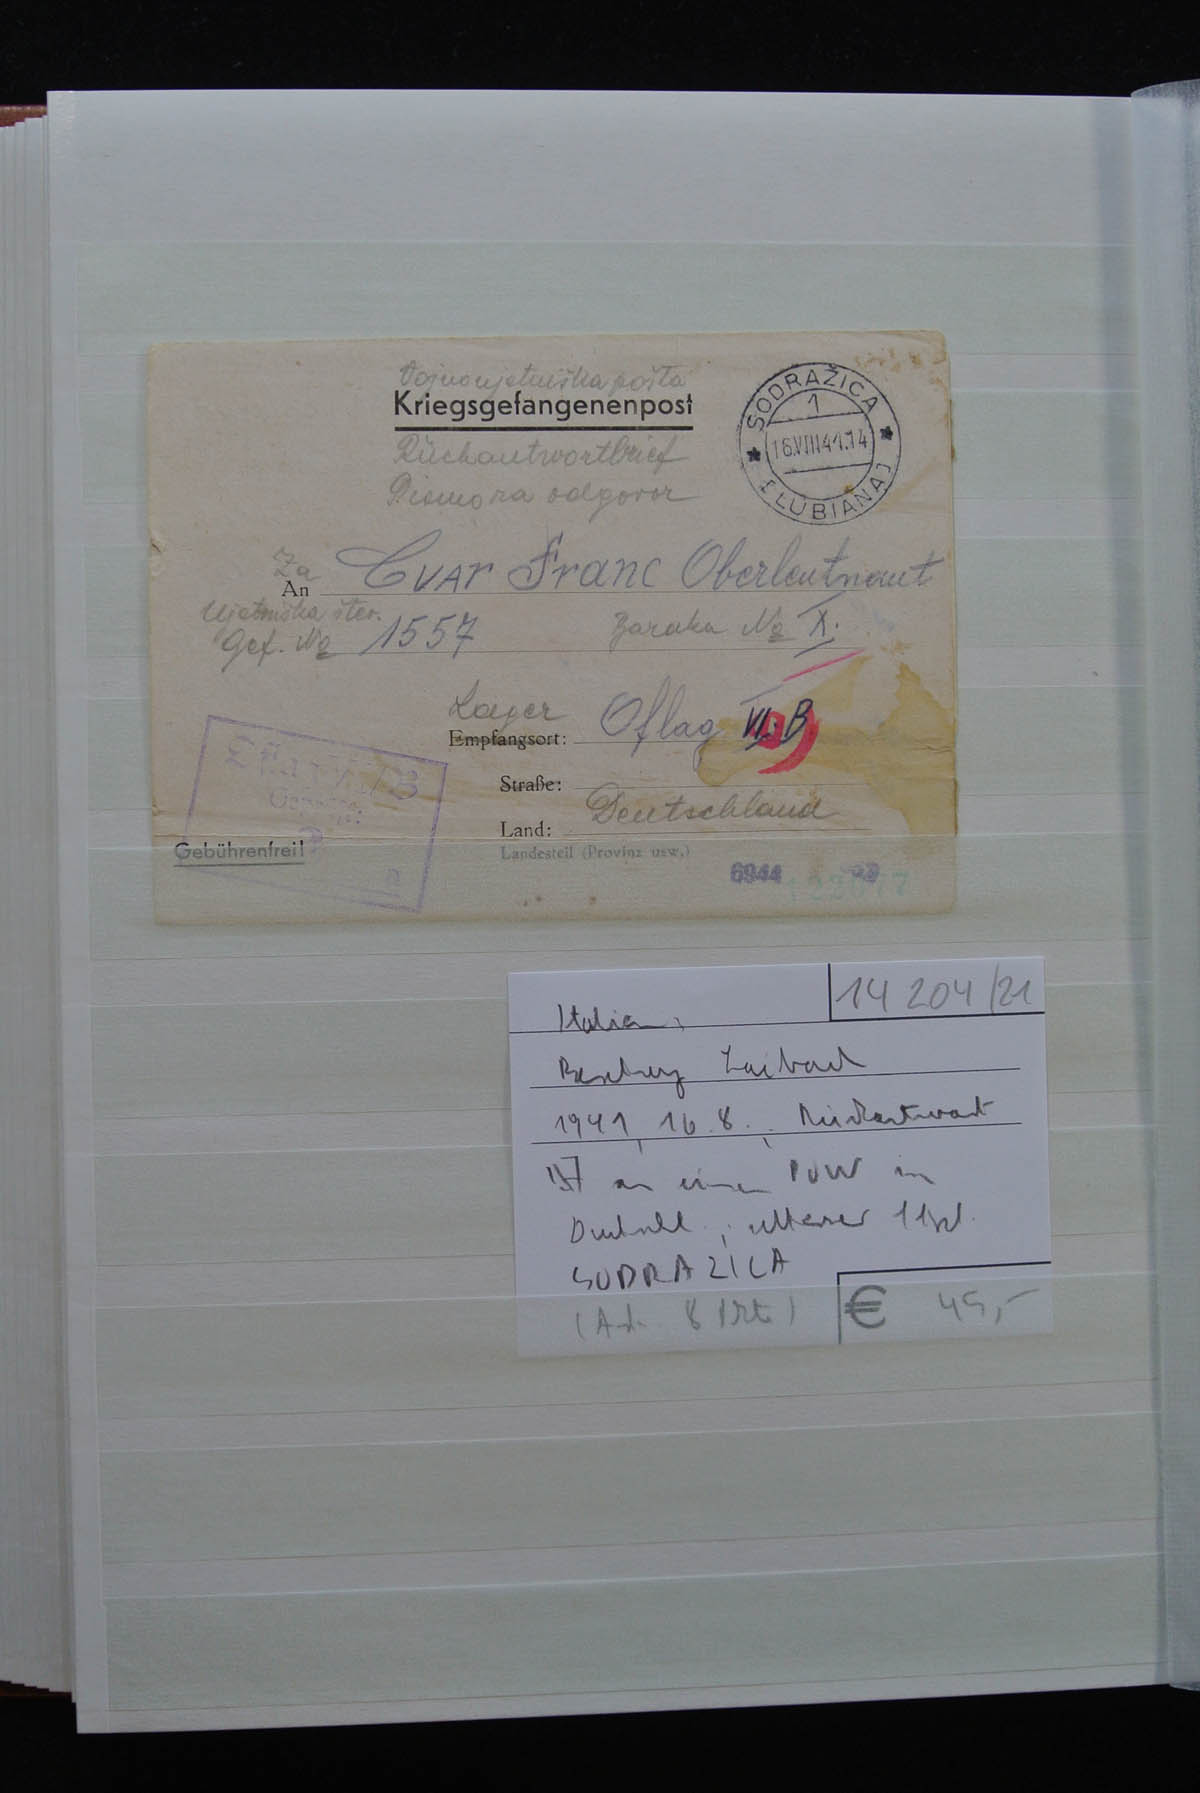 Vojnoujetniška pošta
Kriegsgefangenenpost
Rückantwortbrief
Pismo za odgovor
SODRAŽICA
1
16.VIII 41.14
(LUBIANA)
Za
An Cvar Franc Oberleutnant
Ujetniška štev.
Gef. No 1557 Baraka No X.
Lager Oflag VI. B
Empfangsort:
Straße:
Deutschland
Land:
Landesteil (Provinz usw.)
Oflag VI/B
Geprüft:
Gebührenfrei!
6944
14 204/21
Italien,
Laibach
1941, 16.8., Rückantwort
an einen POW in
SODRAZICA
€ 45,-